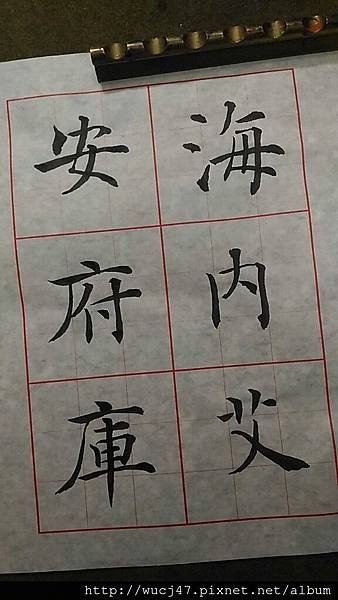 海内艾
安府庫
http://wucj47.pixnet.net/album